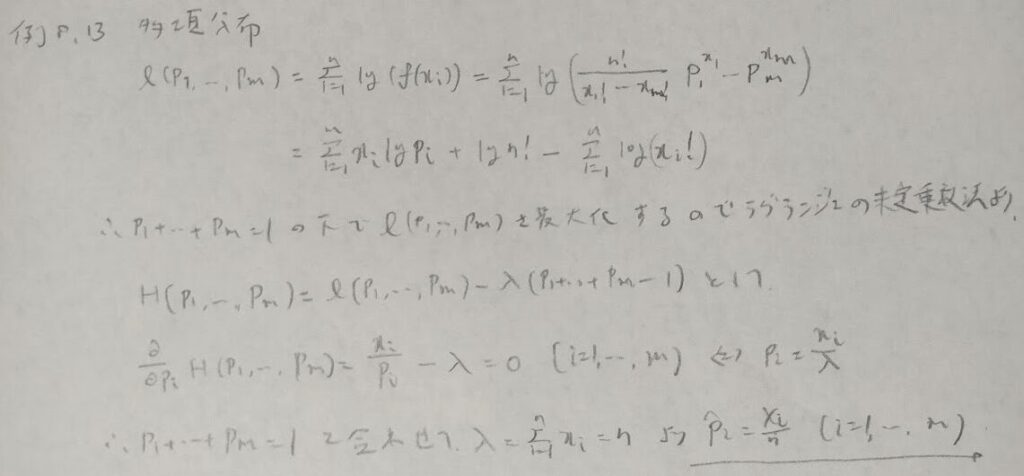 例 8.13 多項分布
l(P₁, …, Pₘ) = Σᵢ₌₁ⁿ log (f(xᵢ)) = Σᵢ₌₁ⁿ log (n!/(x₁! … xₘ!) P₁^x₁ … Pₘ^xₘ)
= Σᵢ₌₁ⁿ xᵢ log Pᵢ + log n! − Σᵢ₌₁ⁿ log(xᵢ!)
∴ P₁+…+Pₘ=1 の下で l(P₁, …, Pₘ) を最大化するのでラグランジュの未定乗数法より,
H(P₁, …, Pₘ) = l(P₁, …, Pₘ) − λ(P₁+…+Pₘ−1) として
∂/∂Pᵢ H(P₁, …, Pₘ) = xᵢ/Pᵢ − λ = 0 (i=1, …, m) ⇔ Pᵢ = xᵢ/λ
∴ P₁+…+Pₘ=1 と合わせて, λ = Σᵢ₌₁ⁿ xᵢ = n より P̂ᵢ = Xᵢ/n (i=1, …, m)